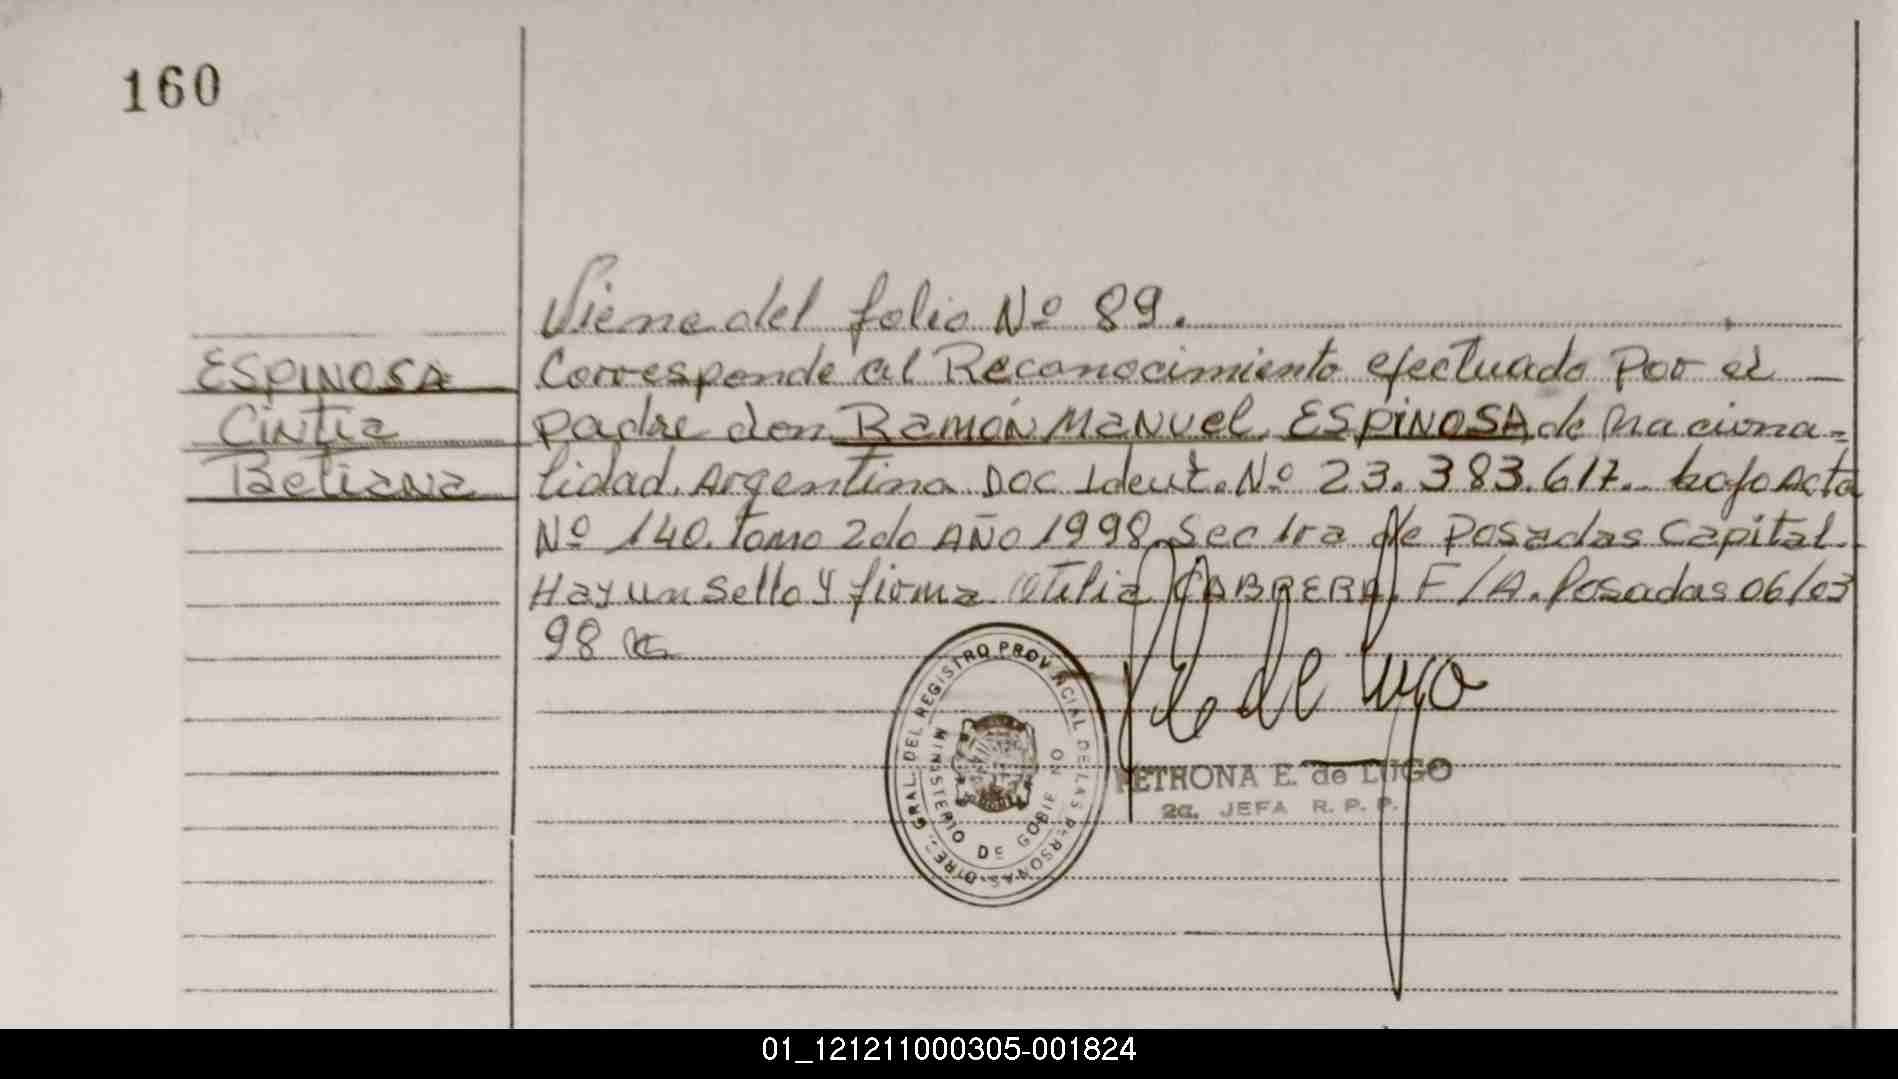 160
Viene del folio Nº 89.
ESPINOSA
Cintia
Betiana
Corresponde al Reconocimiento efectuado Por el
padre don RAMÓN MANUEL ESPINOSA de naciona=
lidad Argentina DOC Ident. Nº 23.383.617. bajo Acta
Nº 140. Tomo 2do AÑO 1998 Sec 1ra de Posadas Capital.
Hay un sello y firma Otilia CABRERA. F/A. Posadas 06/03
98
DIREC. GRAL. DEL REGISTRO PROVINCIAL DE LAS PERSONAS
MINISTERIO DE GOBIERNO
P E de Lugo
PETRONA E. de LUGO
2a. JEFA R. P. P.
01_121211000305-001824